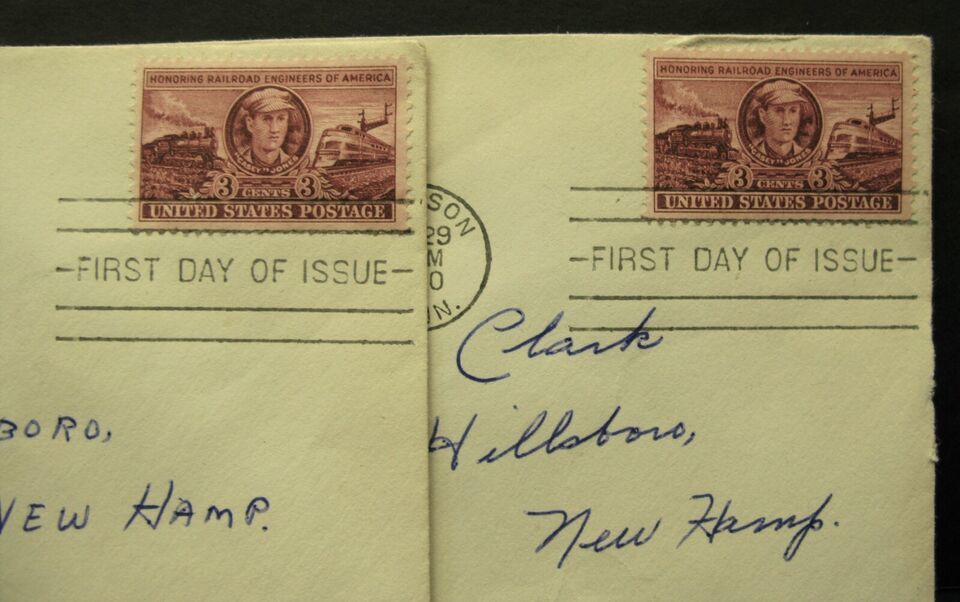 HONORING RAILROAD ENGINEERS OF AMERICA
"CASEY" JONES
3 CENTS 3
UNITED STATES POSTAGE
FIRST DAY OF ISSUE
BORO,
NEW HAMP.
HONORING RAILROAD ENGINEERS OF AMERICA
"CASEY" JONES
3 CENTS 3
UNITED STATES POSTAGE
SON
29
M
0
N.
FIRST DAY OF ISSUE
Clark
Hillsboro,
New Hamp.